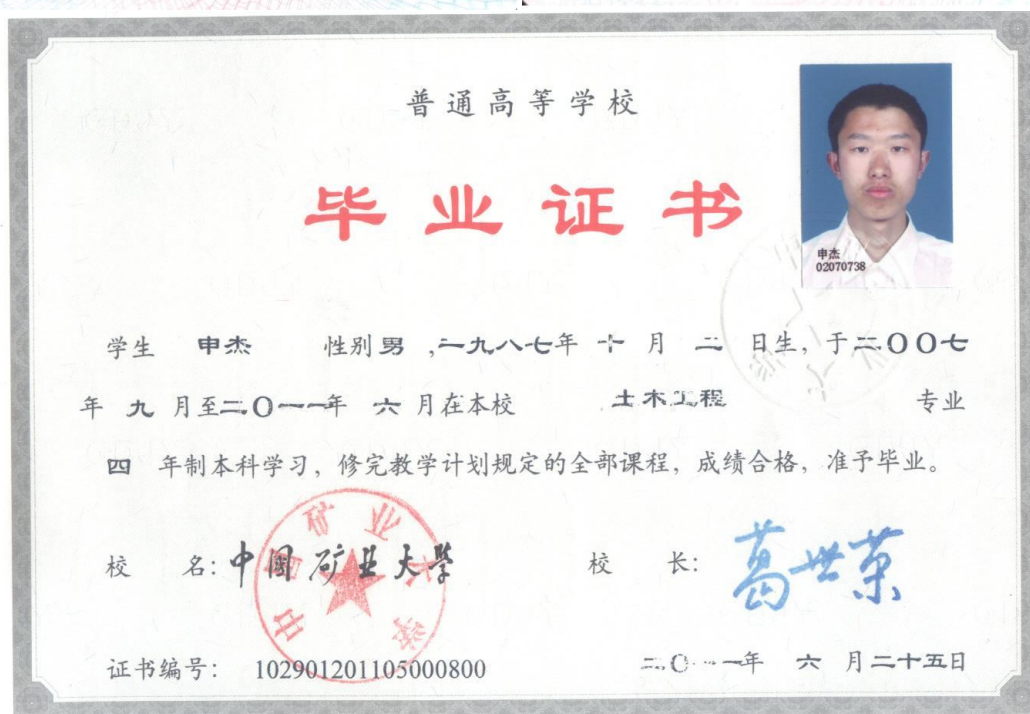 普通高等学校
毕业证书
申杰
02070738
学生 申杰 性别 男 ,一九八七年 十 月 二 日生, 于二〇〇七
年 九 月至二〇一一年 六 月在本校 土木工程 专业
四 年制本科学习, 修完教学计划规定的全部课程, 成绩合格, 准予毕业。
校 名: 中国矿业大学 校 长: 葛世荣
中国矿业大学
证书编号: 102901201105000800 二〇一一年 六 月二十五日